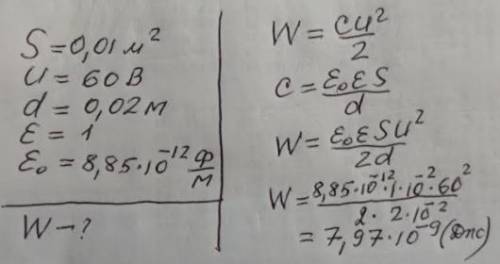 S = 0,01 м²
U = 60 В
d = 0,02 м
ε = 1
ε₀ = 8,85·10⁻¹² Ф/м
W – ?
W = CU²/2
C = ε₀εS/d
W = ε₀εSU²/2d
W = 8,85·10⁻¹²·1·10⁻²·60²/2·2·10⁻²
= 7,97·10⁻⁹ (Дж)